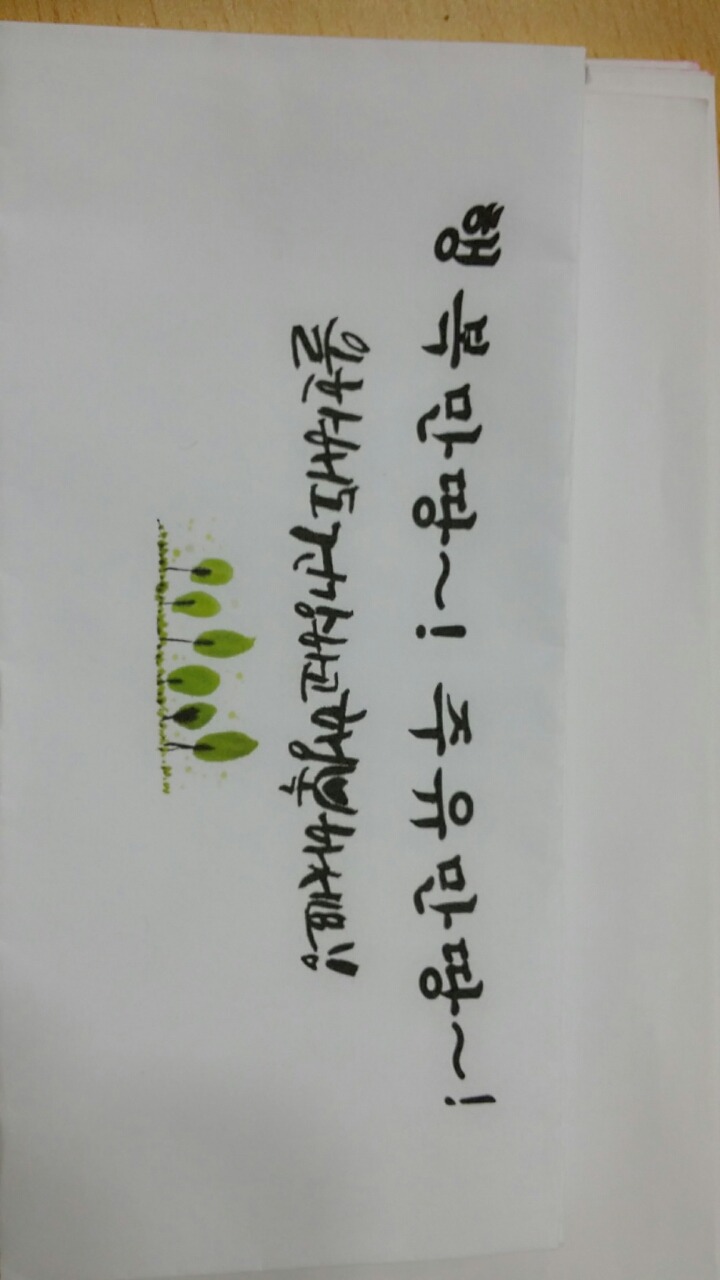 행복만땅~! 주유만땅~!
올한해도건강하고행복하세요!